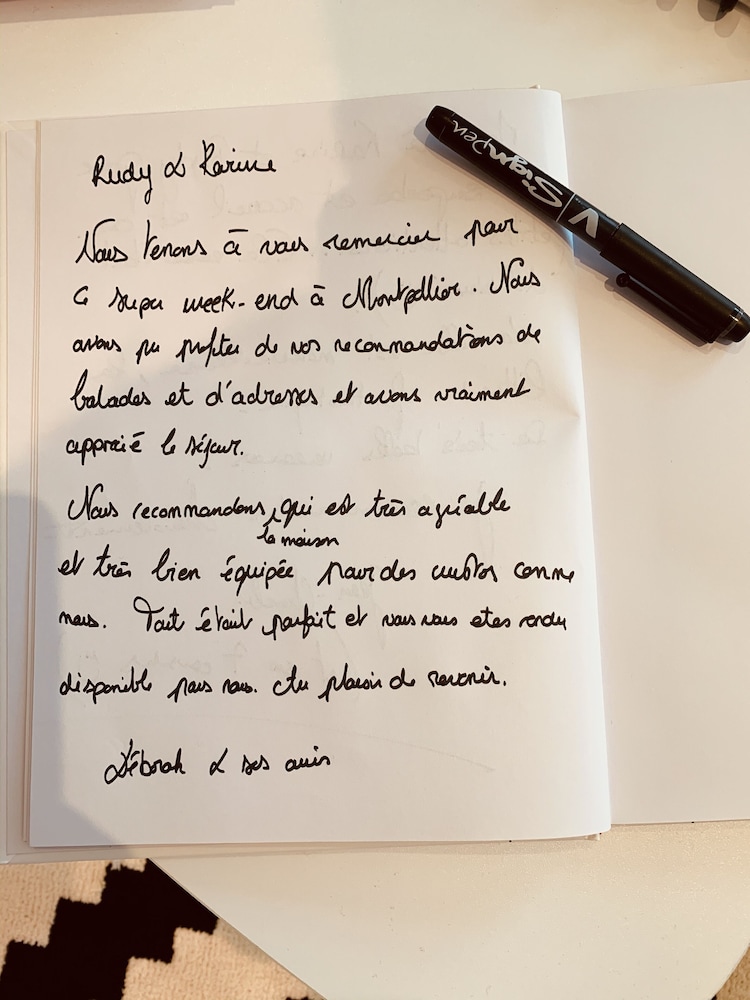 Rudy & Karine
Nous tenons à vous remercier pour
ce super week-end à Montpellier. Nous
avons pu profiter de vos recommandations de
balades et d'adresses et avons vraiment
apprécié le séjour.
Nous recommandons, qui est très agréable
la maison
et très bien équipée pour des cuistos comme
nous. Tout était parfait et vous vous etes rendu
disponible pour nous. Au plaisir de revenir.
Déborah & ses amis
V Sign Pen